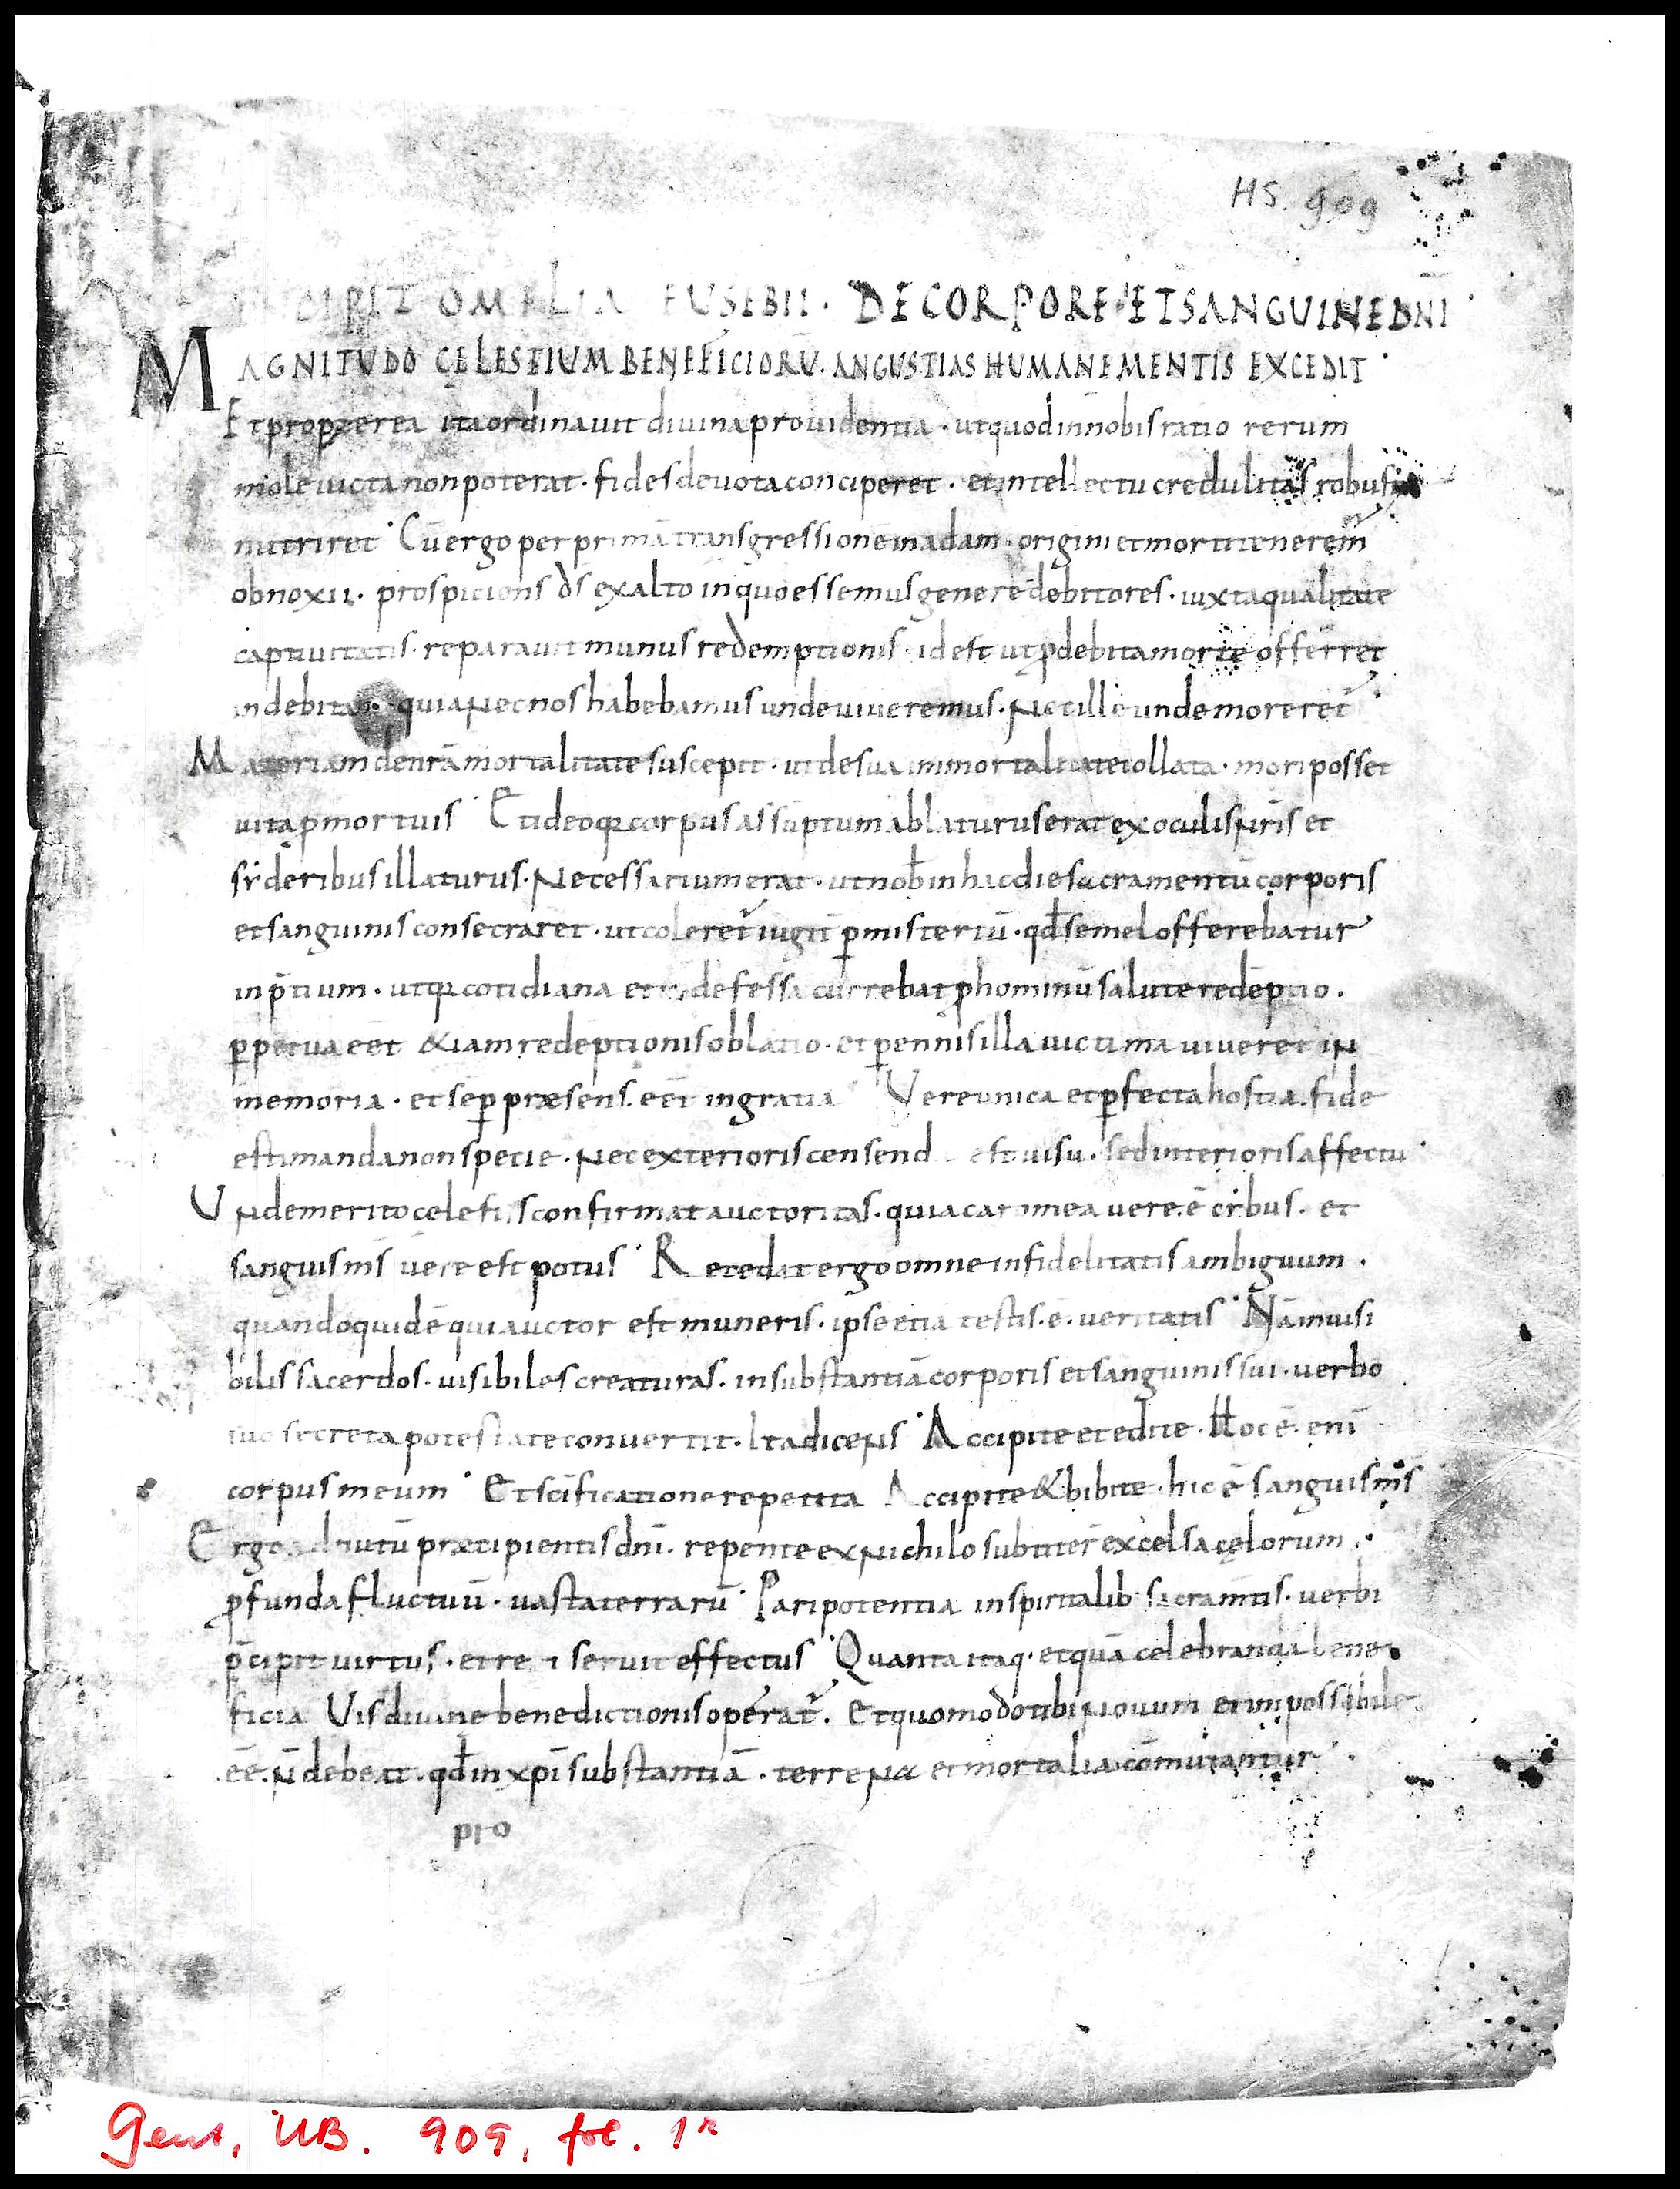 HS. 909
INCIPIT OMELIA EUSEBII · DE CORPORE ET SANGUINE DNI
MAGNITUDO CĘLESTIUM BENEFICIORŪ · ANGUSTIAS HUMANE MENTIS EXCEDIT ·
Et propterea ita ordinavit divina providentia · ut quod in nobis ratio rerum
mole victa non poterat · fides devota conciperet · et intellectu credulitas robusta
nutriret · Cū ergo per primā transgressionē in adam · origini et morti tenerem̄
obnoxii · prospiciens d̄s ex alto in quo essemus genere debitores · iuxta qualitate
captivitatis · reparavit munus redemptionis · id est ut ꝓ debita morte offerret
indebitam · quia nec nos habebamus unde viveremus · Nec ille unde moreret̄
Materiam de n̄rā mortalitate suscepit · ut de sua immortalitate collata · mori posset
vita ꝓ mortuis · Et ideo q; corpus assūptum ablaturus erat ex oculis n̄ris et
syderibus illaturus · Necessarium erat · ut nob̄ in hac die sacramentū corporis
et sanguinis consecraret · ut coleret̄ iugit̄ ꝑ misteriū · qd̄ semel offerebatur
in p̄tium · ut q; cotidiana et indefessa currebat ꝓ hominū salute redēptio ·
ꝑpetua eēt &iam redēptionis oblatio · et ꝑennis illa victima viveret in
memoria · et sēꝑ præsens · eēt in gratia · Vere unica et ꝑfecta hostia · fide
estimanda non specie · Nec exterioris censend est visu · sed interioris affectu ·
Unde merito celestis confirmat auctoritas · quia caro mea vere · ē cibus · et
sanguis m̄s vere est potus · Recedat ergo omne infidelitatis ambiguum ·
quandoquidē qui auctor est muneris · ipse etiā testis · ē · veritatis · Nā invisi
bilis sacerdos · visibiles creaturas · in substantiā corporis et sanguinis sui · verbo
suo secreta potestate convertit · Ita dicens · Accipite et edite · Hoc ē · enī
corpus meum · Et sc̄ificatione repetita Accipite & bibite · hic ē sanguis m̄s
Ergo ad nutū præcipientis dn̄i · repente ex nichilo subtiter̄ excelsa cęlorum ·
ꝓfunda fluctuū · vasta terrarū · Pari potentia in spiritalib · sacram̄tis · verbi
p̄cipit virtus · et rei servit effectus · Quanta itaq · et quā celebranda bene
ficia Vis divine benedictionis operat̄ · Et quomodo tibi novum et impossibile
eē · n̄ debeat · qd̄ in xp̄i substantiā · terrena et mortalia cōmutantur ·
pro
Gent, UB. 909, fol. 1r